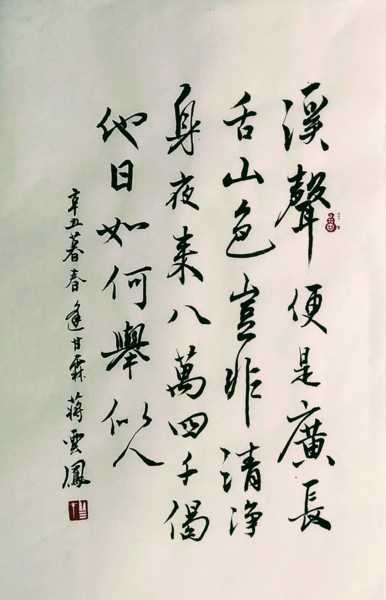 溪聲便是廣長
舌山色豈非清净
身夜来八萬四千偈
他日如何舉似人
辛丑暮春逢甘霖蔣雲鳳